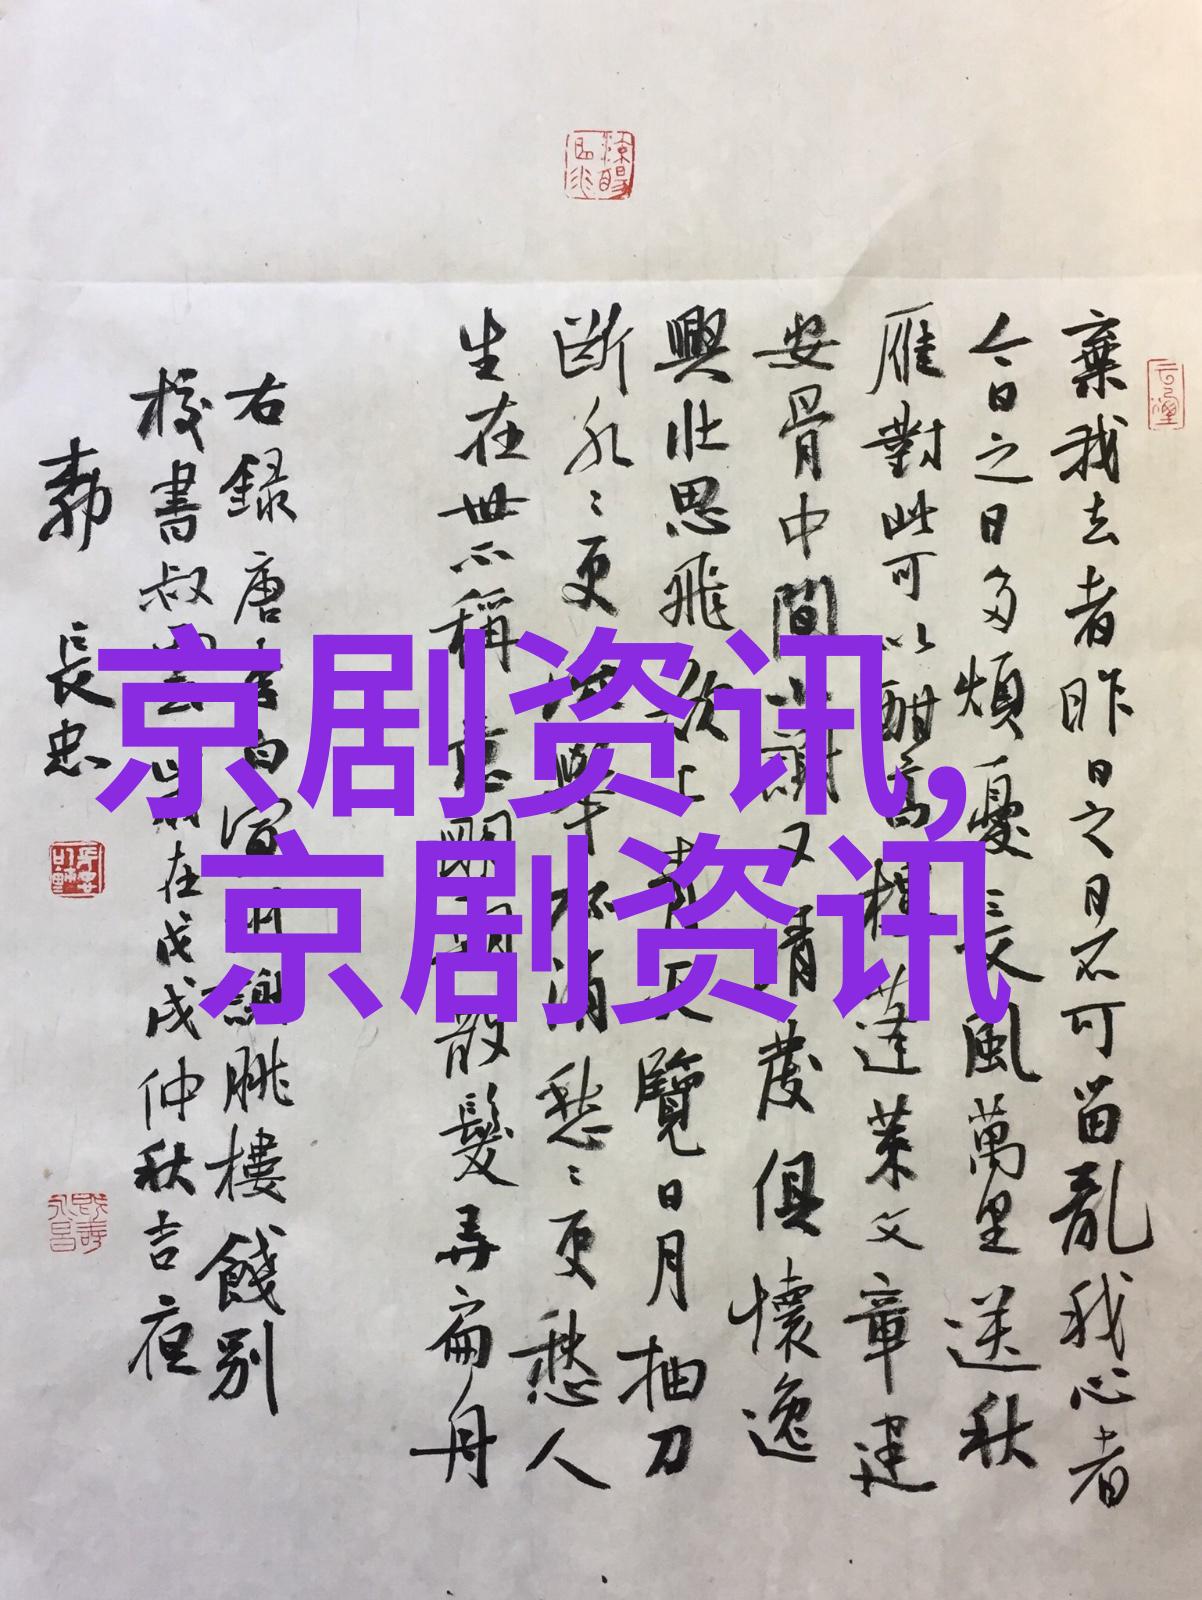 棄我去者昨日之日不可留亂我心者
今日之日多煩憂長風萬里送秋
雁對此可以酣高樓蓬萊文章建
安骨中間小謝又清發俱懷逸
興壯思飛欲上青天覽日月抽刀
断水〻更流舉杯消愁〻更愁人
生在世不稱意明朝散髮弄扁舟
右録唐李白宣州謝朓樓餞別
校書叔雲在戊戌仲秋吉夜
長忠
京剧资讯,
京剧资讯